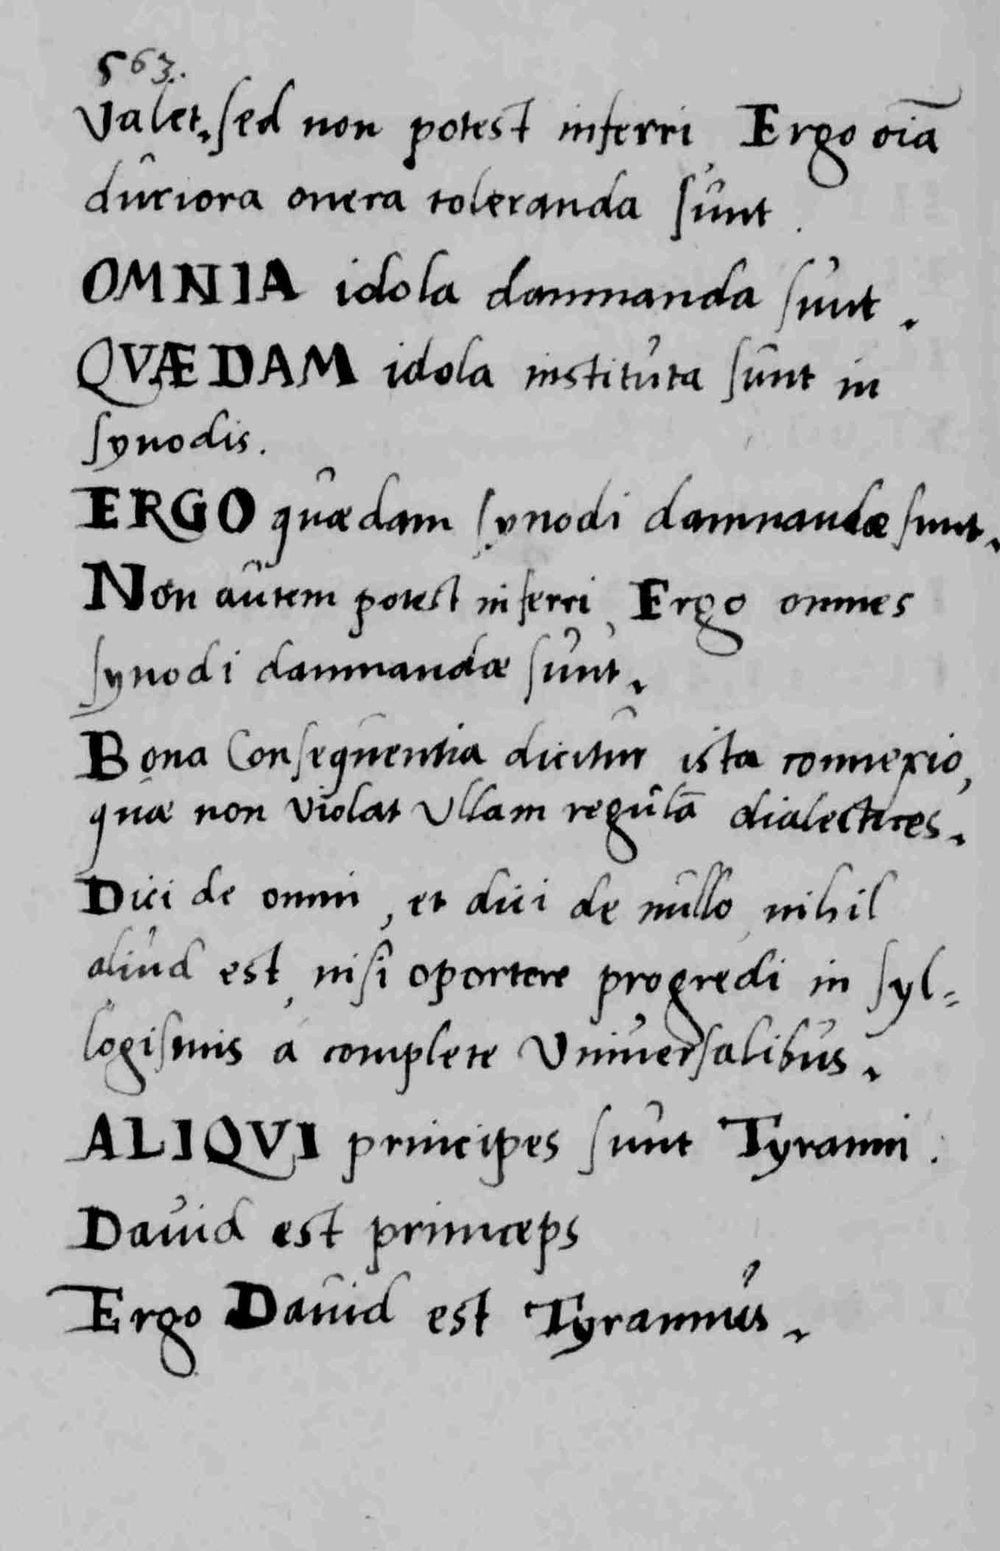 563.
Valet, sed non potest inferri, Ergo oīa
duriora onera toleranda sunt.
OMNIA idola damnanda sunt.
QVÆDAM idola instituta sunt in
synodis.
ERGO quædam synodi damnandæ sunt.
Non autem potest inferri, Ergo omnes
synodi damnandæ sunt.
Bona Consequentia dicitur ista connexio,
quæ non violat Ullam regulā dialectices.
Dici de omni, et dici de nullo, nihil
aliud est, nisi oportere progredi in syl=
logismis a complete Vniuersalibus.
ALIQVI principes sunt Tyranni.
Dauid est princeps
Ergo Dauid est Tyrannus.